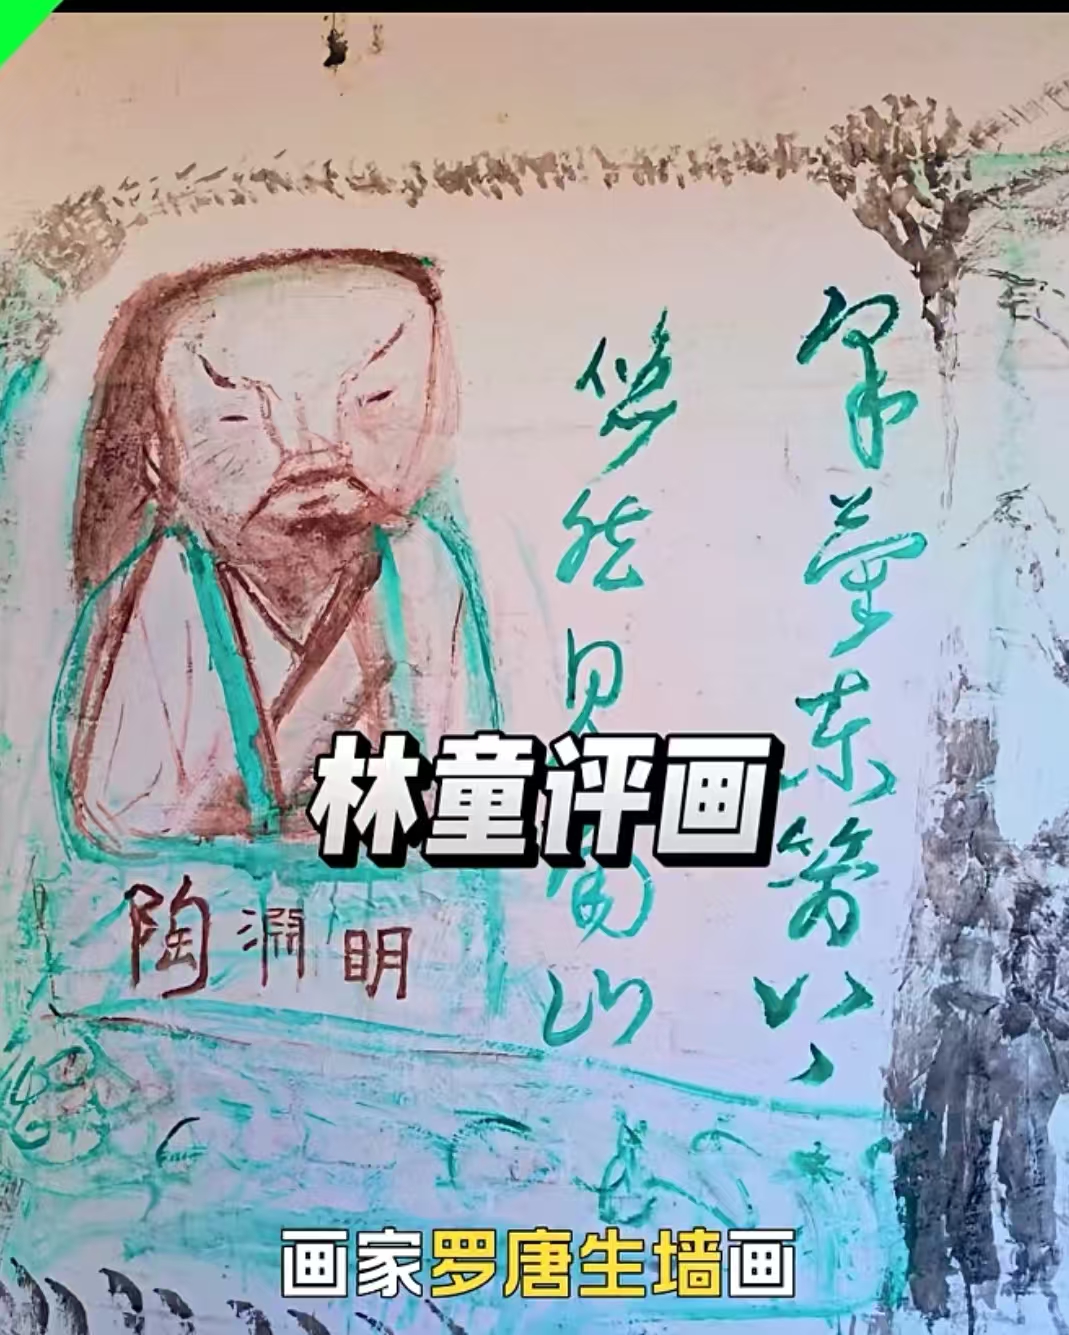 采菊东篱下
悠然见南山
陶渊明
林童评画
画家罗唐生墙画